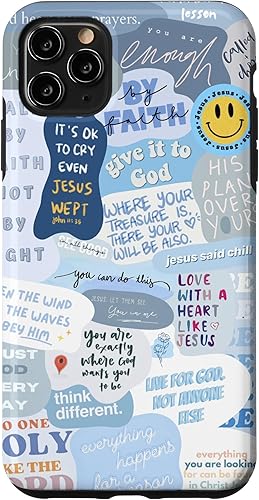 lesson
d he
prayers.
you are
enough
called
BY
FAITH
IT'S OK
TO CRY
EVEN
JESUS
WEPT
john 11:35
Jesus Jesus Jesus Jesus
give it to
God
HIS
PLAN
OVER
YOUR
WHERE YOUR
TREASURE IS,
THERE YOUR
WILL BE ALSO.
BY
FAITH
NOT
BY
IGHT
jesus said chill
in all things
you can do this
LOVE
WITH A
HEART
LIKE
JESUS
EN THE WIND
THE WAVES
BEY HIM
JESUS, LET THEM SEE
You in me.
you are
exactly
where God
wants you to
be
UST
OD
VERY
AY
think
different.
LIVE FOR GOD,
NOT ANYONE
ELSE
O ONE
OLY
IKE THE
ORD
everything
happens
for a
reason
everything
you are looking
for can be fo
in Christ